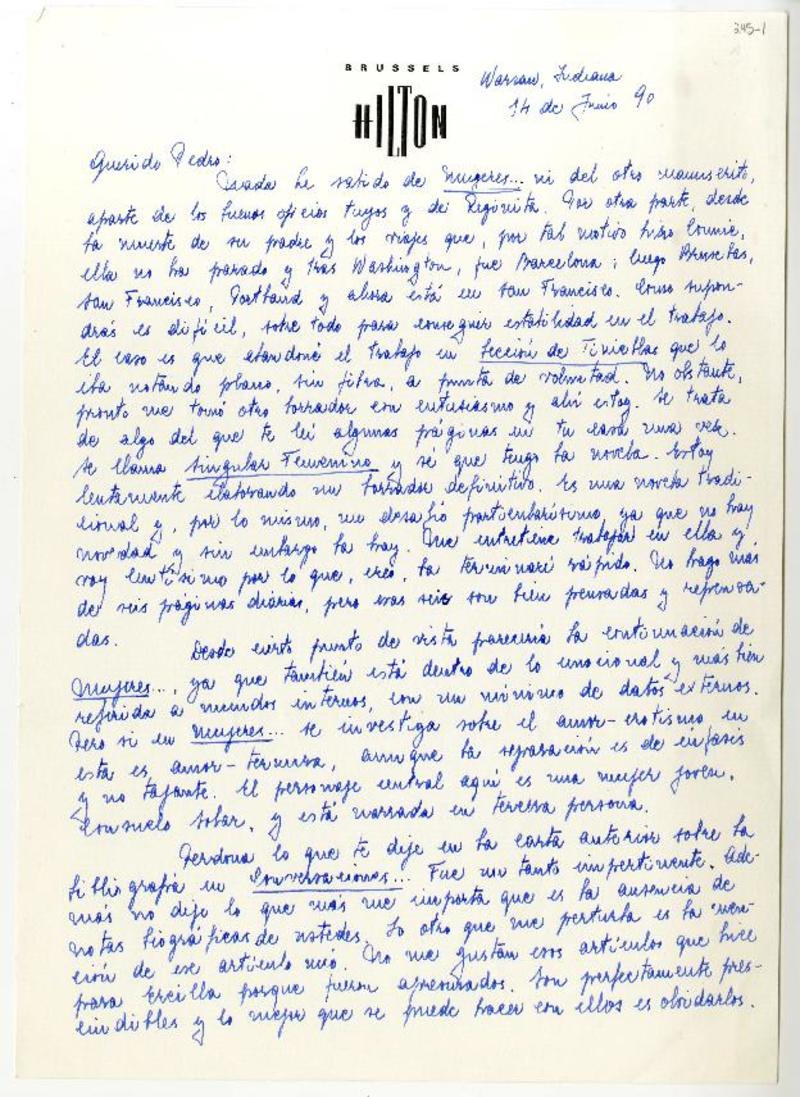 345-1
BRUSSELS
HILTON
Warsaw, Indiana
14 de Junio 90
Querido Pedro:
Nada he sabido de Mujeres... ni del otro manuscrito,
aparte de los buenos oficios tuyos y de Reginita. Por otra parte, desde
la muerte de su padre y los viajes que, por tal motivo hizo Connie,
ella no ha parado y tras Washington, fue Barcelona; luego Bruselas,
San Francisco, Portland y ahora está en San Francisco. Como supon-
drás es difícil, sobre todo para conseguir estabilidad en el trabajo.
El caso es que abandoné el trabajo en Lección de Tinieblas que lo
iba notando plano, sin fibra, a punta de voluntad. No obstante,
pronto me tomó otro borrador con entusiasmo y ahí estoy. Se trata
de algo del que te leí algunas páginas en tu casa una vez.
Se llama Singular Femenino y sé que tengo la novela. Estoy
lentamente elaborando un borrador definitivo. Es una novela tradi-
cional y, por lo mismo, un desafío particularísimo, ya que no hay
novedad y sin embargo la hay. Me entretiene trabajar en ella y
voy lentísimo por lo que, creo, la terminaré rápido. No hago más
de seis páginas diarias, pero esas seis son bien pensadas y repensa-
das.
Desde cierto punto de vista parecería la continuación de
Mujeres..., ya que también está dentro de lo emocional y más bien
referida a mundos internos, con un mínimo de datos externos.
Pero si en Mujeres... se investiga sobre el amor-erotismo, en
esta es, amor-ternura, aunque la separación es de énfasis
y no tajante. El personaje central aquí es una mujer joven,
Consuelo Tobar, y está narrada en tercera persona.
Perdona lo que te dije en la carta anterior sobre la
bibliografía en Conversaciones... Fue un tanto impertinente. Ade-
más no dije lo que más me importa que es la ausencia de
notas biográficas de ustedes. Lo otro que me perturba es la men-
ción de ese artículo mío. No me gustan esos artículos que hice
para Ercilla porque fueron apresurados. Son perfectamente pres-
cindibles y lo mejor que se puede hacer con ellos es olvidarlos.